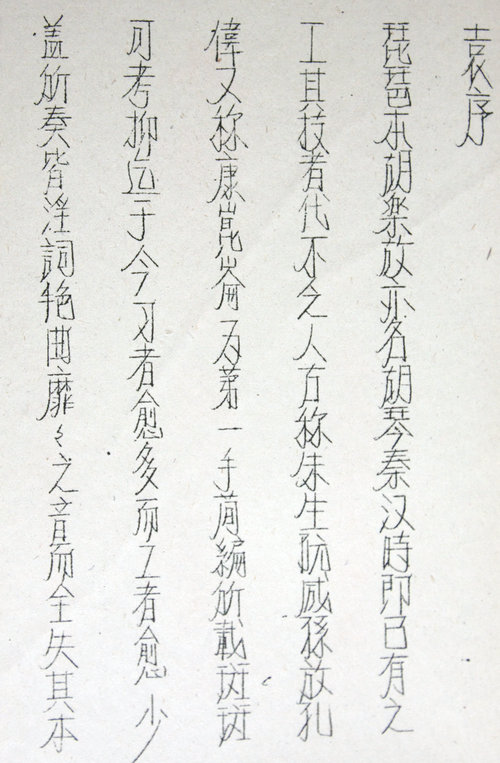 袁序
琵琶本胡樂故亦名胡琴秦汉時即已有之
工其技者代不乏人古称朱生阮咸孫放孔
偉又称康崑崙为苐一手简編所載斑斑
可考抑迄于今习者愈多而工者愈少
盖所奏皆淫詞艳曲靡〻之音而全失其本